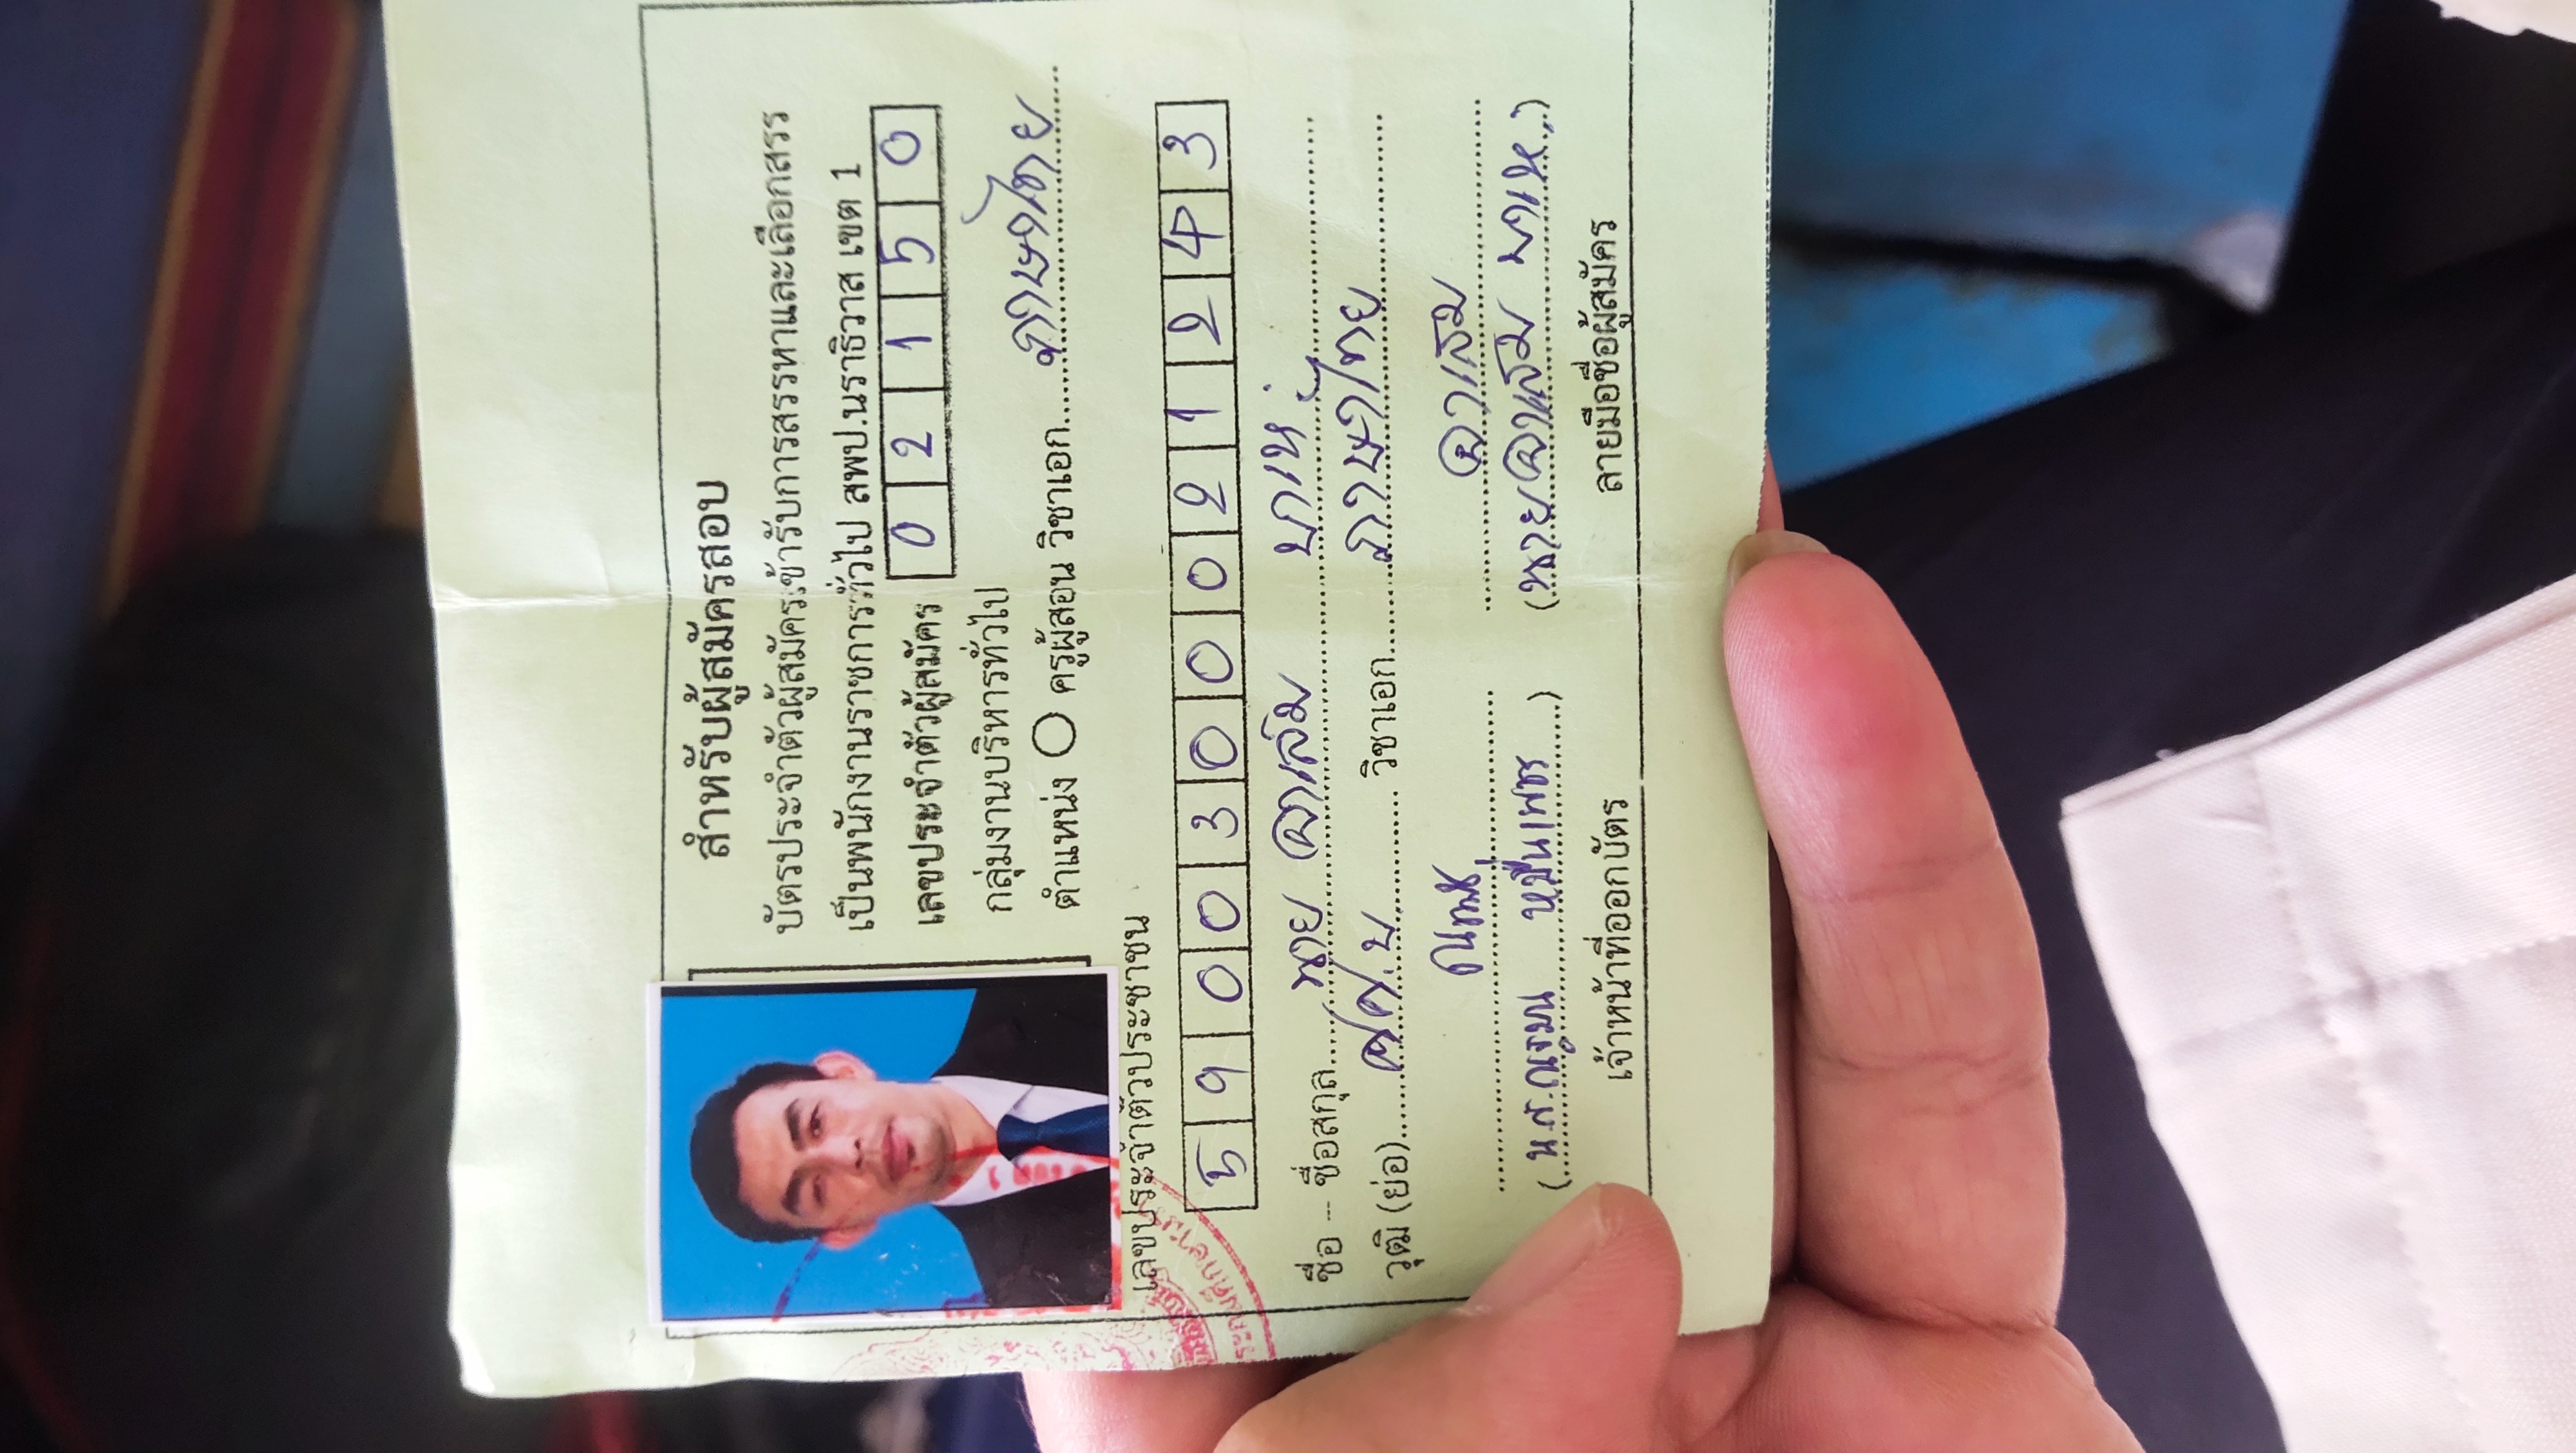 สำหรับผู้สมัครสอบ
บัตรประจำตัวผู้สมัครเข้ารับการสรรหาและเลือกสรร
เป็นพนักงานราชการทั่วไป สพป.นราธิวาส เขต 1
เลขประจำตัวผู้สมัคร 0 2 1 1 5 0
กลุ่มงานบริหารทั่วไป
ตำแหน่ง ครูผู้สอน วิชาเอก ภาษาไทย
เลขประจำตัวประชาชน
5 9 0 0 3 0 0 0 2 1 2 4 3
ชื่อ – ชื่อสกุล นาย อาเสม บาเห่
วุฒิ (ย่อ) ศศ.บ วิชาเอก ภาษาไทย
อาเสม
(นายอาเสม)
เจ้าหน้าที่ออกบัตร ลายมือชื่อผู้สมัคร